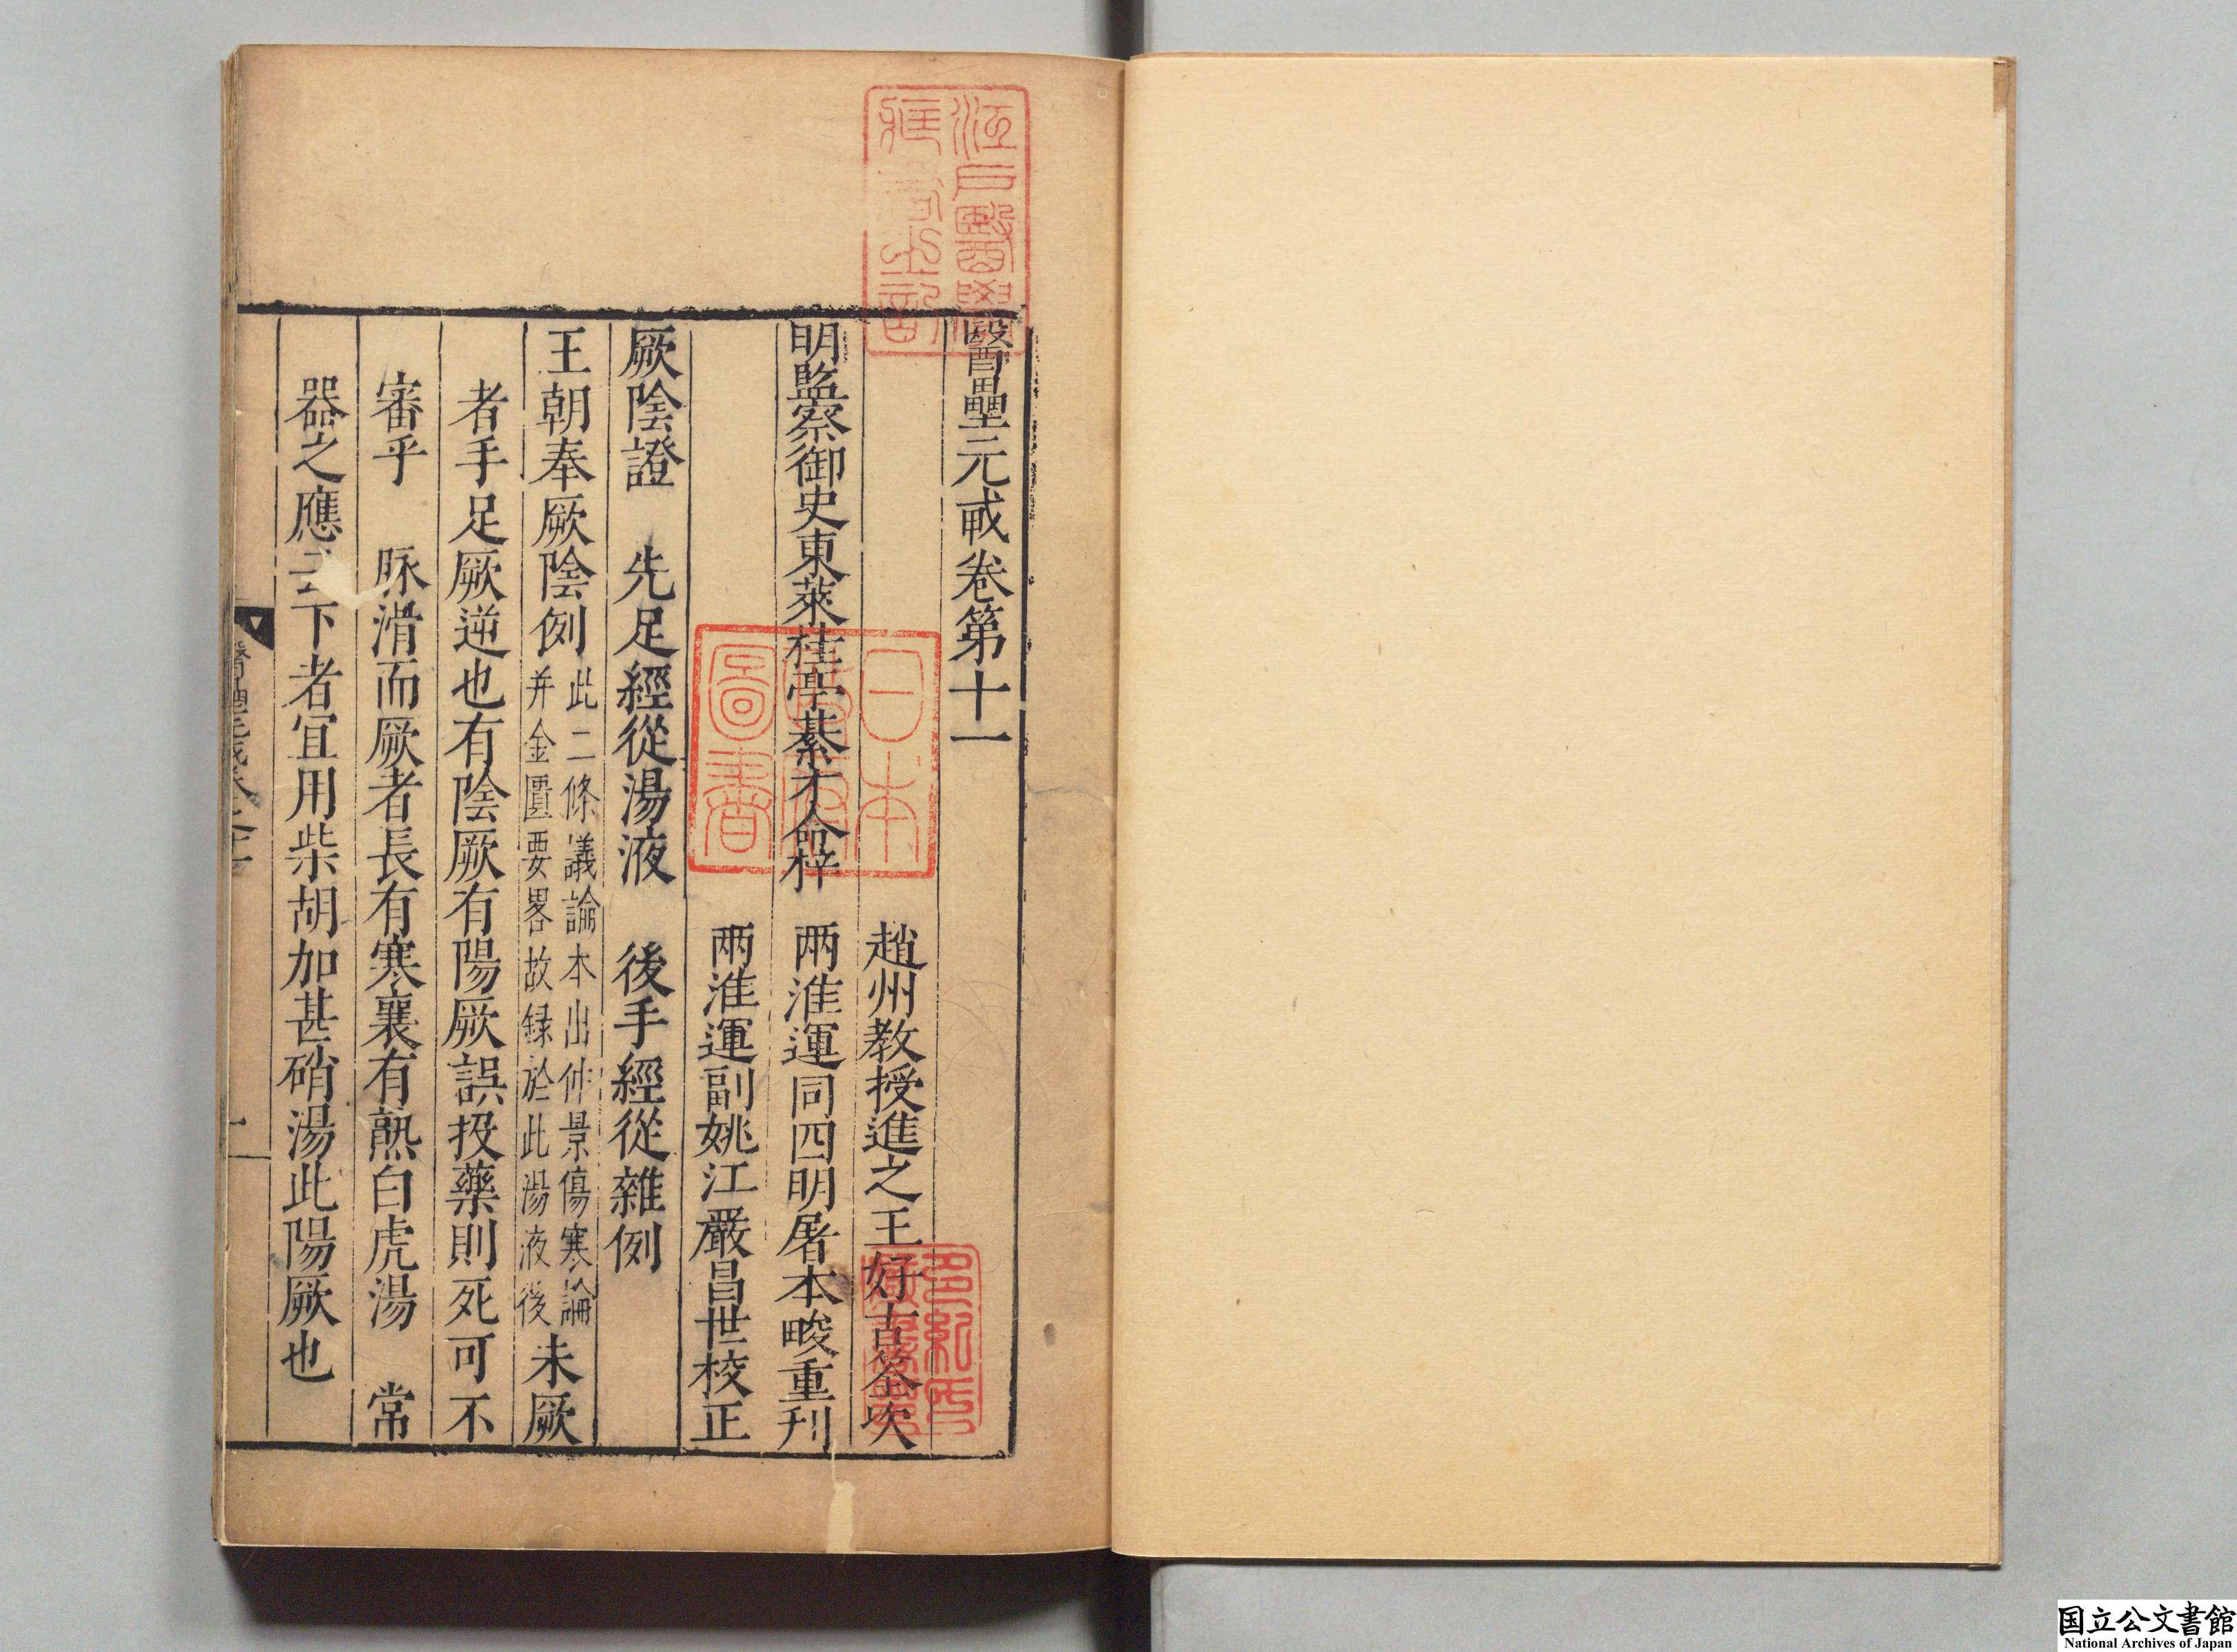 醫壘元戎卷第十一
趙州教授進之王好古筌次
明監察御史東萊桂學綦才命梓
兩淮運同四明屠本畯重刋
兩淮運副姚江嚴昌世校正
厥陰證　先足經從湯液　後手經從雜例
王朝奉厥陰例
此二條議論本出仲景傷寒論
并金匱要畧故録於此湯液後
未厥
者手足厥逆也有陰厥有陽厥誤投藥則死可不
審乎　脉滑而厥者長有寒襄有熱白虎湯　常
器之應下者宜用柴胡加甚硝湯此陽厥也
江戸醫學
藏書之記
日本
圖書
多紀氏
国立公文書館
National Archives of Japan